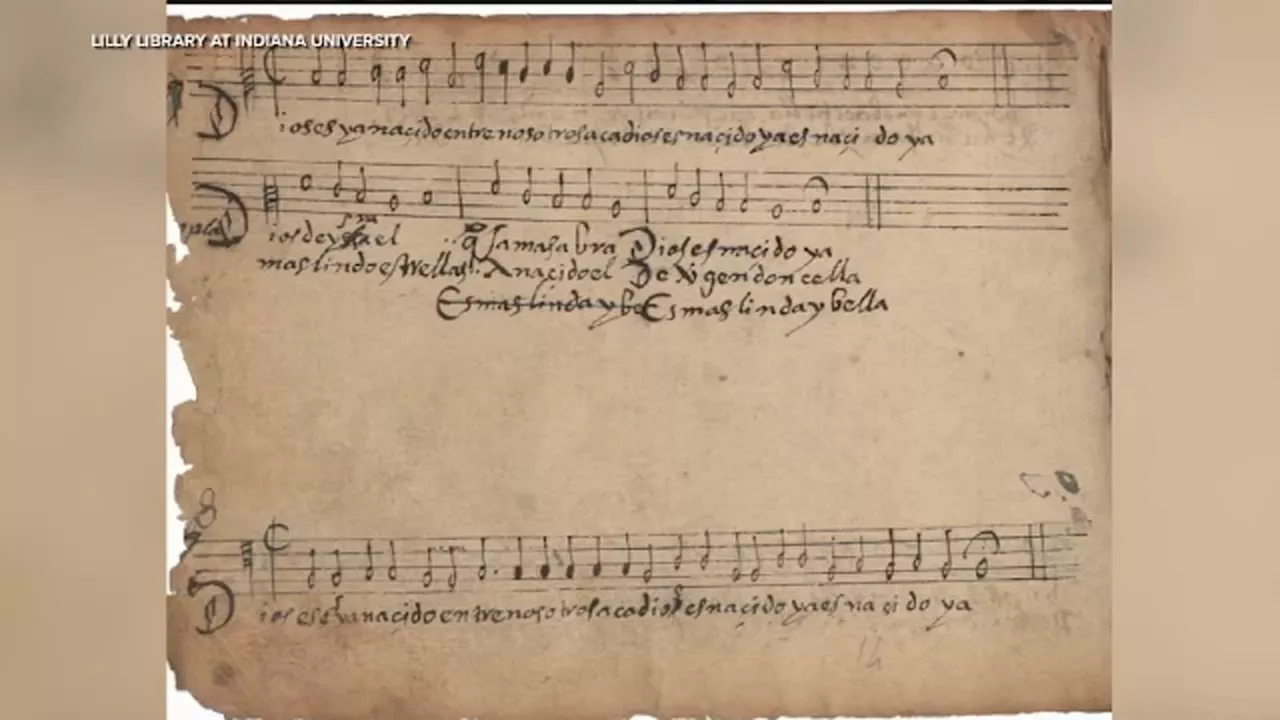 LILLY LIBRARY AT INDIANA UNIVERSITY
Dios es ya naçido entre nosotros aca dios es naçido ya es naçi do ya
Dios de ysrael q̃ Jamas abra Dios es naçido ya
mas lindo estrellas Anacido el De vigen doncella
Es mas linda y be Es mas linda y bella
Dios es ya naçido entre nosotros aca dios es naçido ya es na çi do ya